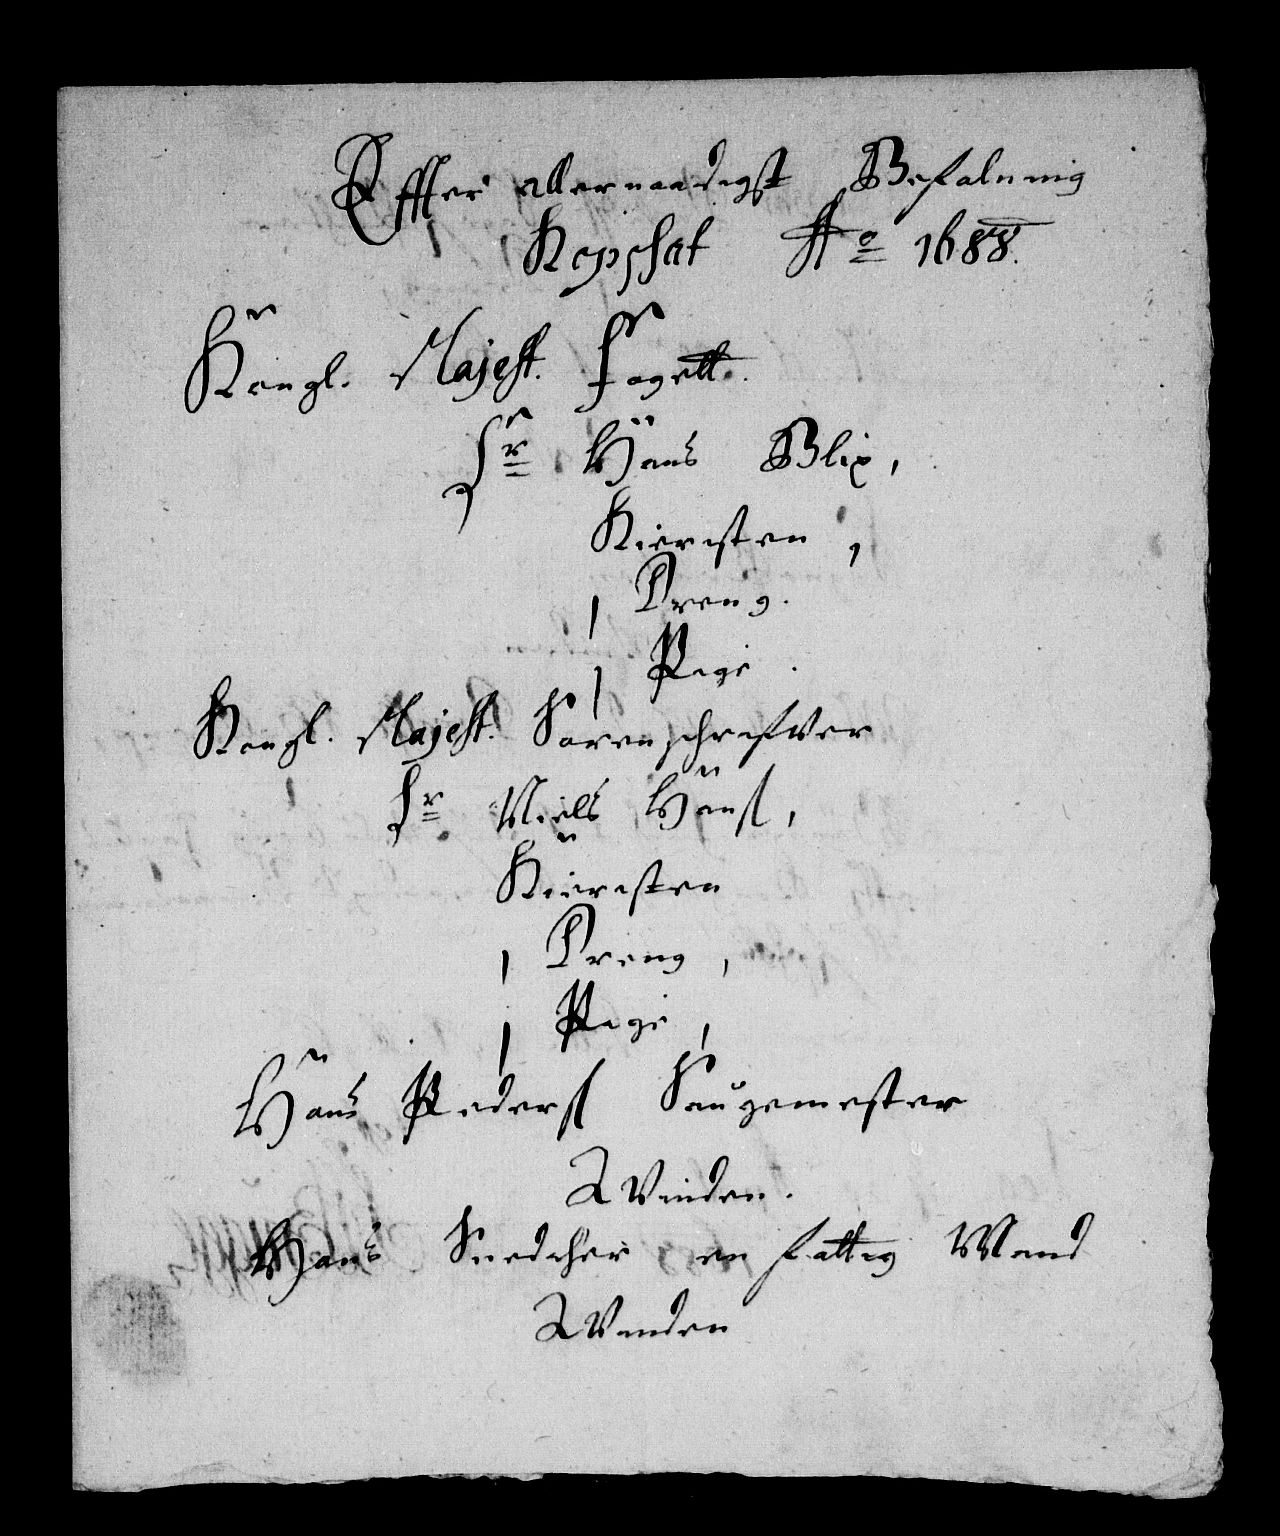 Effter allernaadigst Befalning
Kopschat Ao 1688.
Kongl. Mayest. Fogett.
Sr Hans Blix,
Kieresten,
1 Dreng.
1 Pige.
Kongl. Mayest. Sorenschrifver
Sr Niels Hanss,
Kieresten
1 Dreng,
1 Pige,
Hans Pederss Saugemester
Qvinden.
Hans Snedcher en fattig Mand
Qvinden